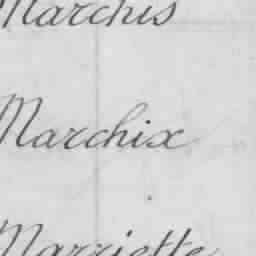 Marchis
Marchix
Marriette